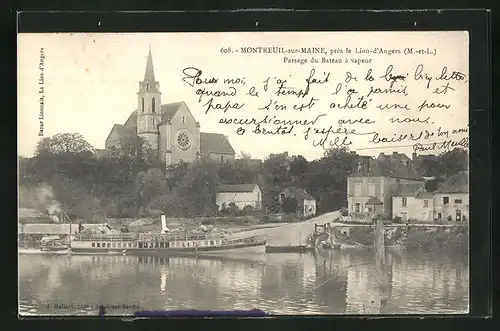 608. - MONTREUIL-sur-MAINE, près le Lion-d'Angers (M.-et-L.)
Passage du Bateau à vapeur
Bazar Lionnais, Le Lion-d'Angers
Pour moi, j'ai fait de la bicyclette,
quand le temps l'a permis et
papa s'en est acheté une pour
excursionner avec nous.
à bientôt, j'espère, milles baisers de ton amie